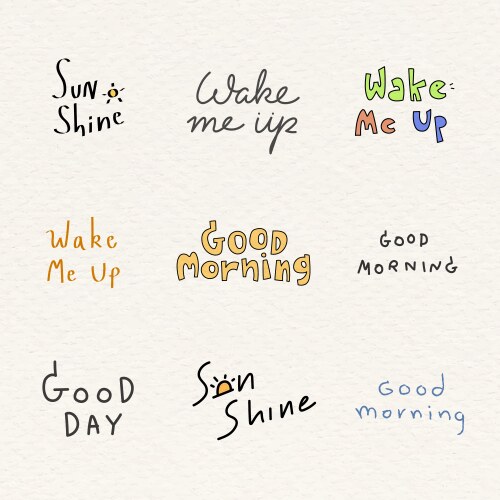 Sun
Shine
Wake
me up
Wake
Me Up
Wake
Me Up
GOOD
Morning
GOOD
MORNING
GOOD
DAY
Sun
Shine
Good
morning